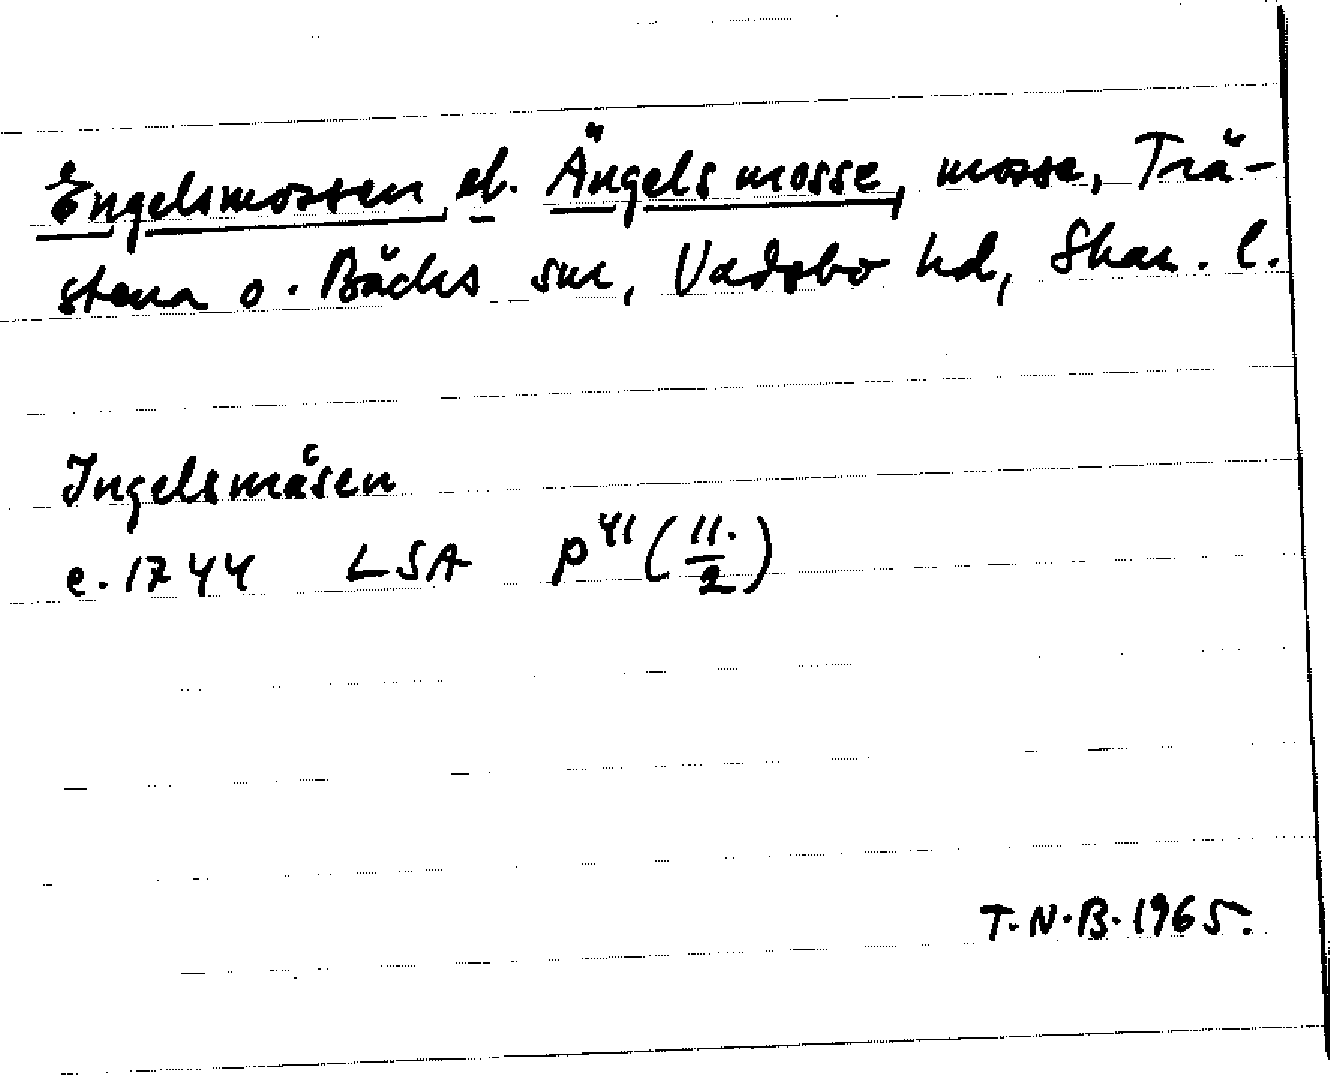 Engelsmossen el. Ängelsmosse, mosse, Trä-
stena o. Bäcks sn, Vadsbo hd, Skar. l.
Ingelsmåsen
c. 1744 LSA P 41 (11./2)
T.N.B. 1965.